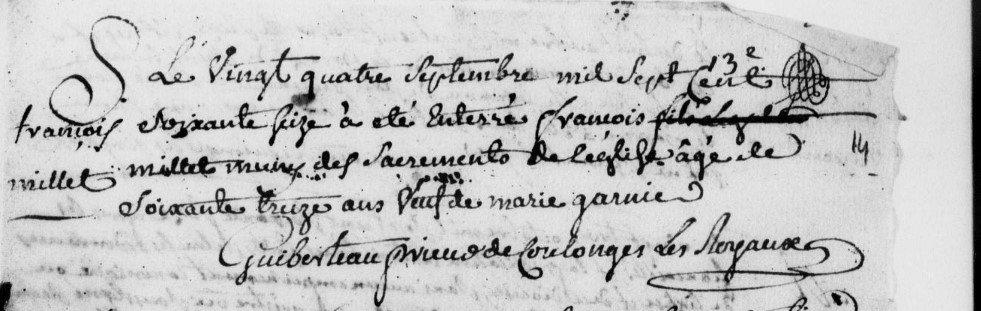 S
13e
Le Vingt quatre septembre mil sept Cent
françois soixante seize à eté Enterré françois
millet millet muny des sacrements de l'église âgé de
14
soixante treize ans Veuf de marie garnier
Guiberteau prieur de Coulonges Les Royaux